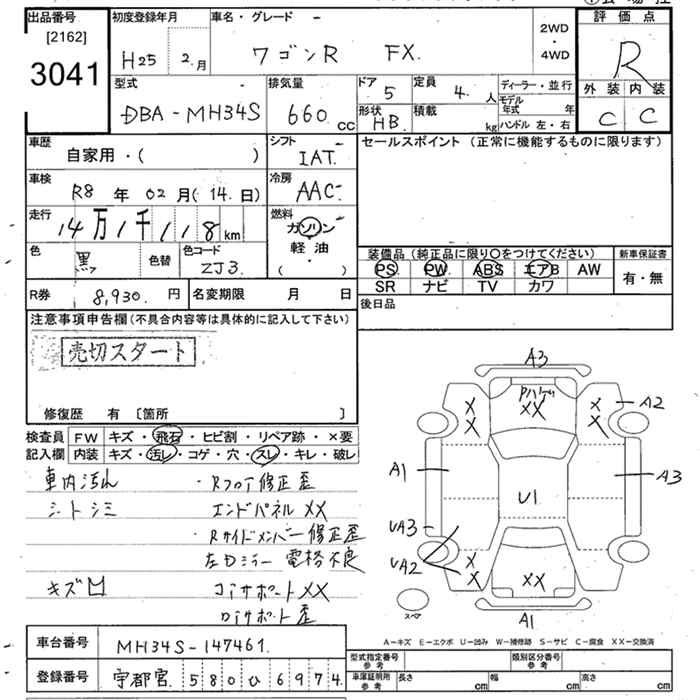 出品番号
[2162]
3041
初度登録年月
H25 2.月
車名・グレード
ワゴンR FX.
2WD
・
4WD
評価点
R
外装 内装
C C
型式
DBA-MH34S
排気量
660 cc
ドア
5
定員
4. 人
形状
HB.
積載
kg
ディーラー・並行
モデル年式 年
ハンドル 左・右
車歴
自家用・( )
シフト
IAT.
車検
R8 年 02 月(14.日)
冷房
AAC
走行
14万1千118km
燃料
ガソリン
軽油
( )
色
黒
色替
色コード
ZJ3.
R券 8,930. 円
名変期限 月 日
セールスポイント(正常に機能するものに限ります)
装備品(純正品に限り〇をつけてください)
PS PW ABS エアB AW
SR ナビ TV カワ
新車保証書
有・無
後日品
注意事項申告欄(不具合内容等は具体的に記入して下さい)
売切スタート
修復歴 有 [箇所 ]
検査員
記入欄
FW キズ・飛石・ヒビ割・リペア跡・×要
内装 キズ・汚レ・コゲ・穴・スレ・キレ・破レ
車内汚れ ・Rフロア修正歪
シートシミ エンドパネルXX
・Rサイドメンバー修正歪
左Dミラー電格不良
キズ凹 コアサポートXX
ロアサポート歪
A3
XX
X
X
X
X
A2
A1
A3
U1
UA3
UA2
X
X
XX
X
X
A1
スペア
A-キズ E-エクボ U-凹み W-補修跡 S-サビ C-腐食 XX-交換済
車台番号 MH34S-147461.
登録番号 宇都宮 580ひ6974
型式指定番号
参考
類別区分番号
参考
車庫証明用
参考
長さ cm 幅 cm 高さ cm